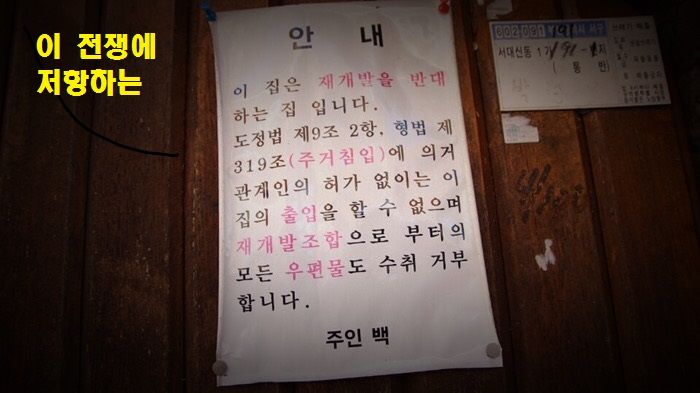 이 전쟁에
저항하는
안 내
이 집은 재개발을 반대
하는 집 입니다.
도정법 제9조 2항, 형법 제
319조(주거침입)에 의거
관계인의 허가 없이는 이
집의 출입을 할 수 없으며
재개발조합으로 부터의
모든 우편물도 수취 거부
합니다.
주인 백
602,091
서대신동 1가
통 반